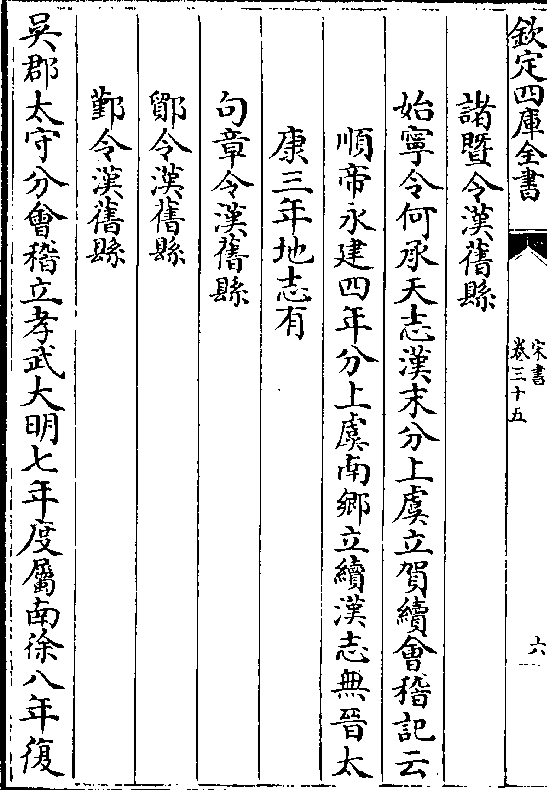 欽定四庫全書
宋書
卷三十五
六
諸暨令漢舊縣
始寧令何承天志漢末分上虞立賀續會稽記云
順帝永建四年分上虞南鄉立續漢志無晉太
康三年地志有
句章令漢舊縣
鄮令漢舊縣
鄞令漢舊縣
吳郡太守分會稽立孝武大明七年度屬南徐八年復